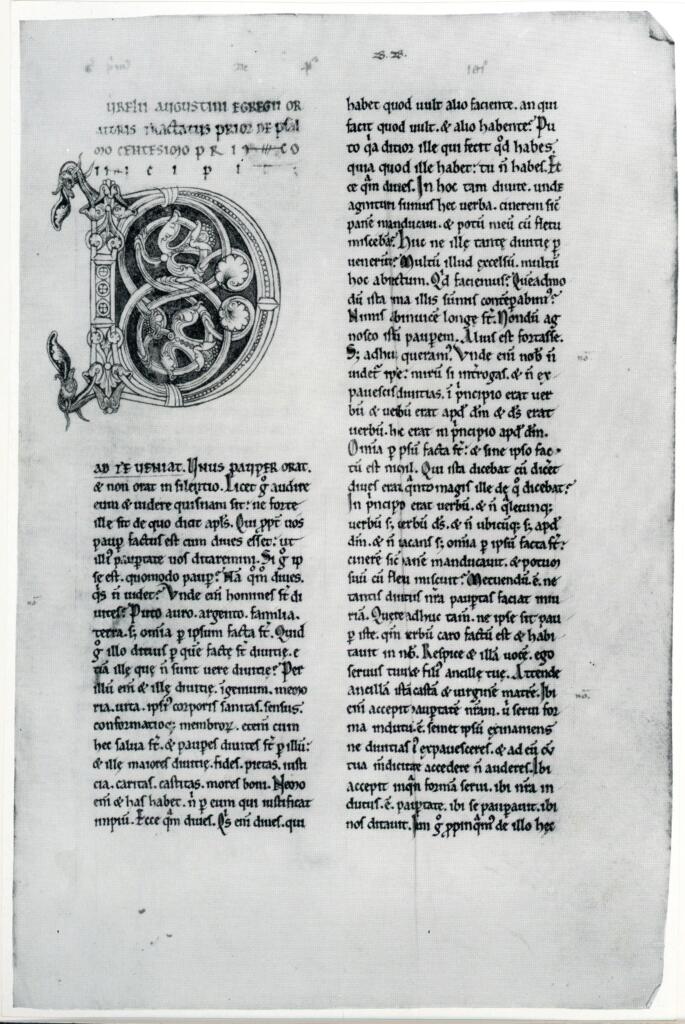 B. B.
URELII AUGUSTINI EGREGII OR
ATORIS TRACTATUS PRIOR DE PSAL
MO CENTESIMO P R I M O
I N C I P I T
D
AD TE VENIAT. UNUS PAUPER ORAT.
& non orat in silentio. Licet g̊ audire
eum & uidere quisnam sit: ne forte
ille sit de quo dicit apl̄s. Qui ꝓpt̄ uos
paup̄ factus est cum diues esset: ut
illi᾽ paup̄tate uos ditaremini. Si g̊ ip
se est. quomodo paup̄? Nā qm̊ diues.
qs̄ n̄ uidet? Vnde eni̅ homines st̄ di
uites? Puto auro. argento. familia.
terra. s; omīa ꝑ ipsum facta st̄. Quid
g̊ illo ditius ꝑ que factę st̄ diuitię. e
tiā illę quę n̄ sunt uere diuitię? Per
illū eni̅ & illę diuitię. ingenium. memo
ria. uita. ipsi᾽ corporis sanitas. sensus.
conformatioq; membroꝝ. etenī cum
hec salua st̄. & paupes diuites st̄ ꝑ illū:
& ille maiores diuitię. fides. pietas. iusti
cia. caritas. castitas. mores boni. Nemo
eni̅ & has habet. n̄ ꝑ eum qui iustificat
impiū. Ecce qm̄ diues. Qs̄ eni̅ diues. qui
habet quod uult alio faciente. an qui
facit quod uult. & alio habente? Pu
to qa̅ ditior ille qui fecit qd̊ habes.
quia quod ille habet: tu n̄ habes. Ec
ce qm̄ diues. In hoc tam diuite. unde
agnituri sumus hec uerba. cinerem sic̄
panē manducaui. & potū meū cū fletu
miscebā? Huc ne illę tantę diuitię ꝑ
uenerūt? Multū illud excelsū. multū
hoc abiectum. Qd̊ facienus? Queādmo
dū ista ima illis sūmis contēpabim᾽?
Nimis abinuicē longe st̄. Nondū ag
nosco istū paupem. Alius est fortasse.
S; adhuc queram᾽. Vnde eni̅ nob̄ n̄
uidet᾽ ipse: mirū si int̄rogas. & n̄ ex
pauescis diuitias. i̅ p̄ncipio erat uer
bū & uerbū erat apd̊ dm̄ & ds̄ erat
uerbū. hc̄ erat in p̄ncipio apd̊ dm̄.
Omīa ꝑ ipsū facta st̄: & sine ipso fac
tū est nichil. Qui ista dicebat cū dicēt
diues erat. q̄nto magis ille de q̊ dicebat?
In p̄ncipo erat uerbū. & n̄ qlecunq;
uerbū s; uerbū ds̄. & n̄ ubicūq; s; apd̊
dm̄. & n̄ uacans s; omīa ꝑ ipsū facta st̄:
cinerē sic̄ panē manducauit. & potum
suū cū fletu miscuit? Metuendū ē. ne
tantis diuitiis nr̄a paupertas faciat iniu
riā. Quere adhuc tam̄. ne ipse sit pau
ꝑ iste. qm̄ uerbū caro factū est & habi
tauit in nob̄. Respice & illā uocē. ego
seruus tuus & fili᾽ ancillę tuę. Attende
ancillā istā castā & uirginē matrē. Ibi
eni̅ accepit paup̄tatē nr̄am. ū serui for
ma indutū ē. semet ipsū exinaniens
ne diuitias i᾽ expauesceres. & ad eū cū
tua m̄dicitate accedere n̄ auderes. Ibi
accepit inqm̄ formā serui. ibi nr̄a in
dutus. ē. paup̄tate. ibi se paupauit. ibi
nos ditauit. Iam g̊ ꝓpinqm᾽ de illo hec